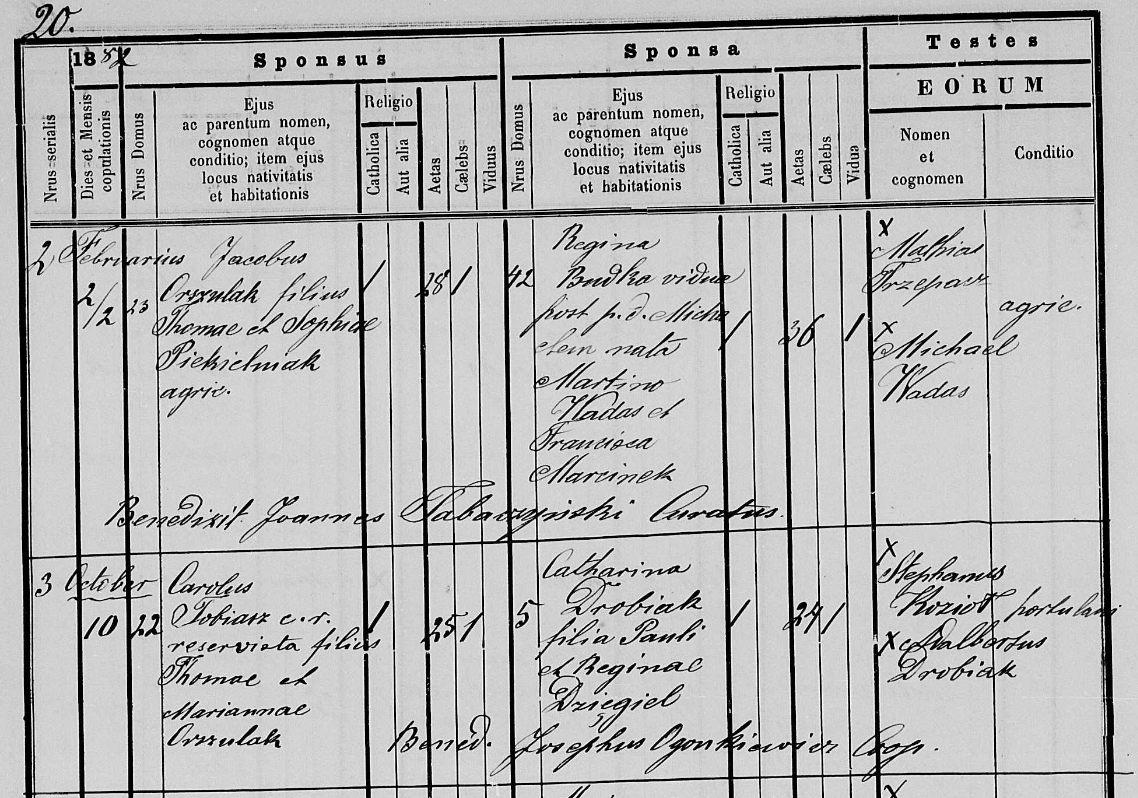 20.
1882
Sponsus
Sponsa
Testes
EORUM
Nrus serialis
Dies et Mensis
copulationis
Nrus Domus
Ejus
ac parentum nomen,
cognomen atque
conditio; item ejus
locus nativitatis
et habitationis
Religio
Catholica
Aut alia
Aetas
Cælebs
Viduus
Nrus Domus
Ejus
ac parentum nomen,
cognomen atque
conditio; item ejus
locus nativitatis
et habitationis
Religio
Catholica
Aut alia
Aetas
Cælebs
Vidua
Nomen
et
cognomen
Conditio
2 Februarius
2/2
23
Jacobus
Orszulak filius
Thomae et Sophiae
Piekielniak
agric.
1
28 1
42
Regina
Budka vidua
post p. d. Micha
elem nata
Martino
Wadas et
Francisca
Marcinek
1
36 1
x
Mathias
Trzepacz
x
Michael
Wadas
agric.
Benedixit Joannes Tabaczyński Curatus.
3 October
10
22
Carolus
Tobiasz c. r.
reservista filius
Thomae et
Mariannae
Orszulak
1
25 1
5
Catharina
Drobiak
filia Pauli
et Reginae
Dzięgiel
1
24 1
x
Stephanus
Kozioł
x Adalbertus
Drobiak
hortulani
Bened. Josephus Ogonkiewicz Coop.
x